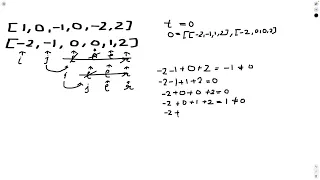 [1,0,-1,0,-2,2]
[-2,-1,0,0,1,2]
i j
j
j l r
t = 0
O=[[-2,-1,1,2],[-2,0,0,2]
-2-1+0+2=-1≠0
-2-1+1+2=0
-2+0+0+2=0
-2+0+1+2=1≠0
-2+